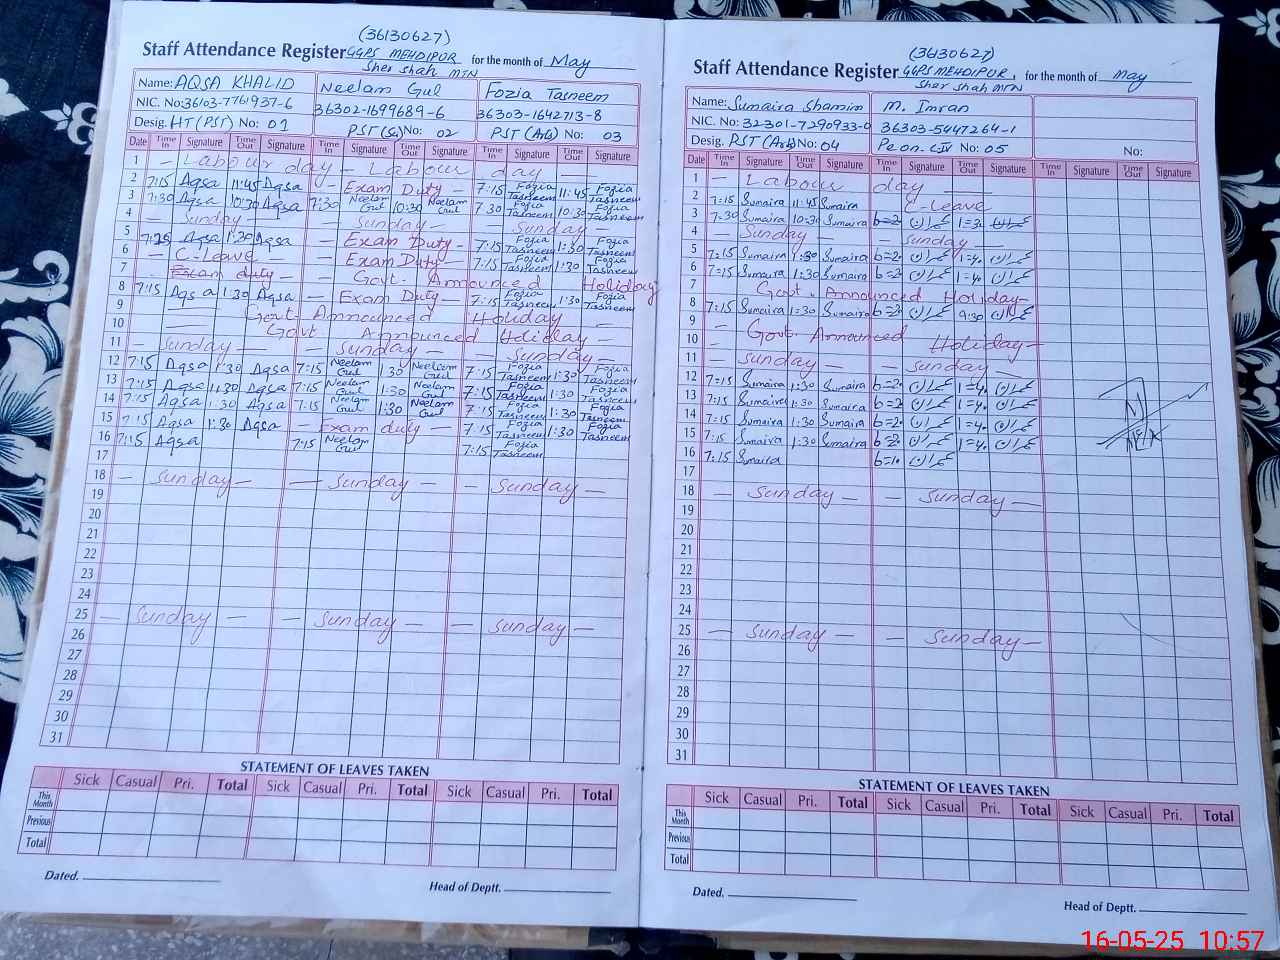 (36130627)
Staff Attendance Register GGPS MEHDIPUR for the month of May
Sher shah MTN
Name: AQSA KHALID Neelam Gul Fozia Tasneem
NIC. No: 36103-7761937-6 36302-1699689-6 36303-1642713-8
Desig. HT (PST) No: 01 PST (Sc) No: 02 PST (Arts) No: 03
Date Time In Signature Time Out Signature Time In Signature Time Out Signature Time In Signature Time Out Signature
1 — Labour day — Labour day —
2 7:15 Aqsa 11:45 Aqsa — Exam Duty — 7:15 Fozia Tasneem 11:45 Fozia Tasneem
3 7:30 Aqsa 10:30 Aqsa 7:30 Neelam Gul 10:30 Neelam Gul 7:30 Fozia Tasneem 10:30 Fozia Tasneem
4 — Sunday — — Sunday — — Sunday —
5 7:25 Aqsa 1:30 Aqsa — Exam Duty — 7:15 Fozia Tasneem 1:30 Fozia Tasneem
6 — C-Leave — — Exam Duty — 7:15 Fozia Tasneem 1:30 Fozia Tasneem
7 Exam duty — Govt. Announced Holiday
8 7:15 Aqsa 1:30 Aqsa — Exam Duty — 7:15 Fozia Tasneem 1:30 Fozia Tasneem
9 Govt. Announced Holiday —
10 Govt Announced Holiday —
11 — Sunday — — Sunday — — Sunday —
12 7:15 Aqsa 1:30 Aqsa 7:15 Neelam Gul 1:30 Neelam Gul 7:15 Fozia Tasneem 1:30 Fozia Tasneem
13 7:15 Aqsa 1:30 Aqsa 7:15 Neelam Gul 1:30 Neelam Gul 7:15 Fozia Tasneem 1:30 Fozia Tasneem
14 7:15 Aqsa 1:30 Aqsa 7:15 Neelam Gul 1:30 Neelam Gul 7:15 Fozia Tasneem 1:30 Fozia Tasneem
15 7:15 Aqsa 1:30 Aqsa — Exam duty — 7:15 Fozia Tasneem 1:30 Fozia Tasneem
16 7:15 Aqsa 7:15 Neelam Gul 7:15 Fozia Tasneem
17
18 — Sunday — — Sunday — — Sunday —
19
20
21
22
23
24
25 — Sunday — — Sunday — — Sunday —
26
27
28
29
30
31
STATEMENT OF LEAVES TAKEN
Sick Casual Pri. Total Sick Casual Pri. Total Sick Casual Pri. Total
This Month
Previous
Total
Dated.
Head of Deptt.
(36130627)
Staff Attendance Register GGPS MEHDIPUR, for the month of May
Sher shah MTN
Name: Sumaira Shamim M. Imran
NIC. No: 32301-7290933-0 36303-5447264-1
Desig. PST (Arts) No: 04 Peon. C IV No: 05 No:
Date Time In Signature Time Out Signature Time In Signature Time Out Signature Time In Signature Time Out Signature
1 — Labour day —
2 7:15 Sumaira 11:45 Sumaira C-Leave
3 7:30 Sumaira 10:30 Sumaira
4 — Sunday — — Sunday —
5 7:15 Sumaira 1:30 Sumaira
6 7:15 Sumaira 1:30 Sumaira
7 Govt. Announced Holiday
8 7:15 Sumaira 1:30 Sumaira
9 — Govt. Announced
10 — Holiday —
11 — Sunday — — Sunday —
12 7:15 Sumaira 1:30 Sumaira
13 7:15 Sumaira 1:30 Sumaira
14 7:15 Sumaira 1:30 Sumaira
15 7:15 Sumaira 1:30 Sumaira
16 7:15 Sumaira
17
18 — Sunday — — Sunday —
19
20
21
22
23
24
25 — Sunday — — Sunday —
26
27
28
29
30
31
STATEMENT OF LEAVES TAKEN
Sick Casual Pri. Total Sick Casual Pri. Total Sick Casual Pri. Total
This Month
Previous
Total
Dated.
Head of Deptt.
16-05-25 10:57